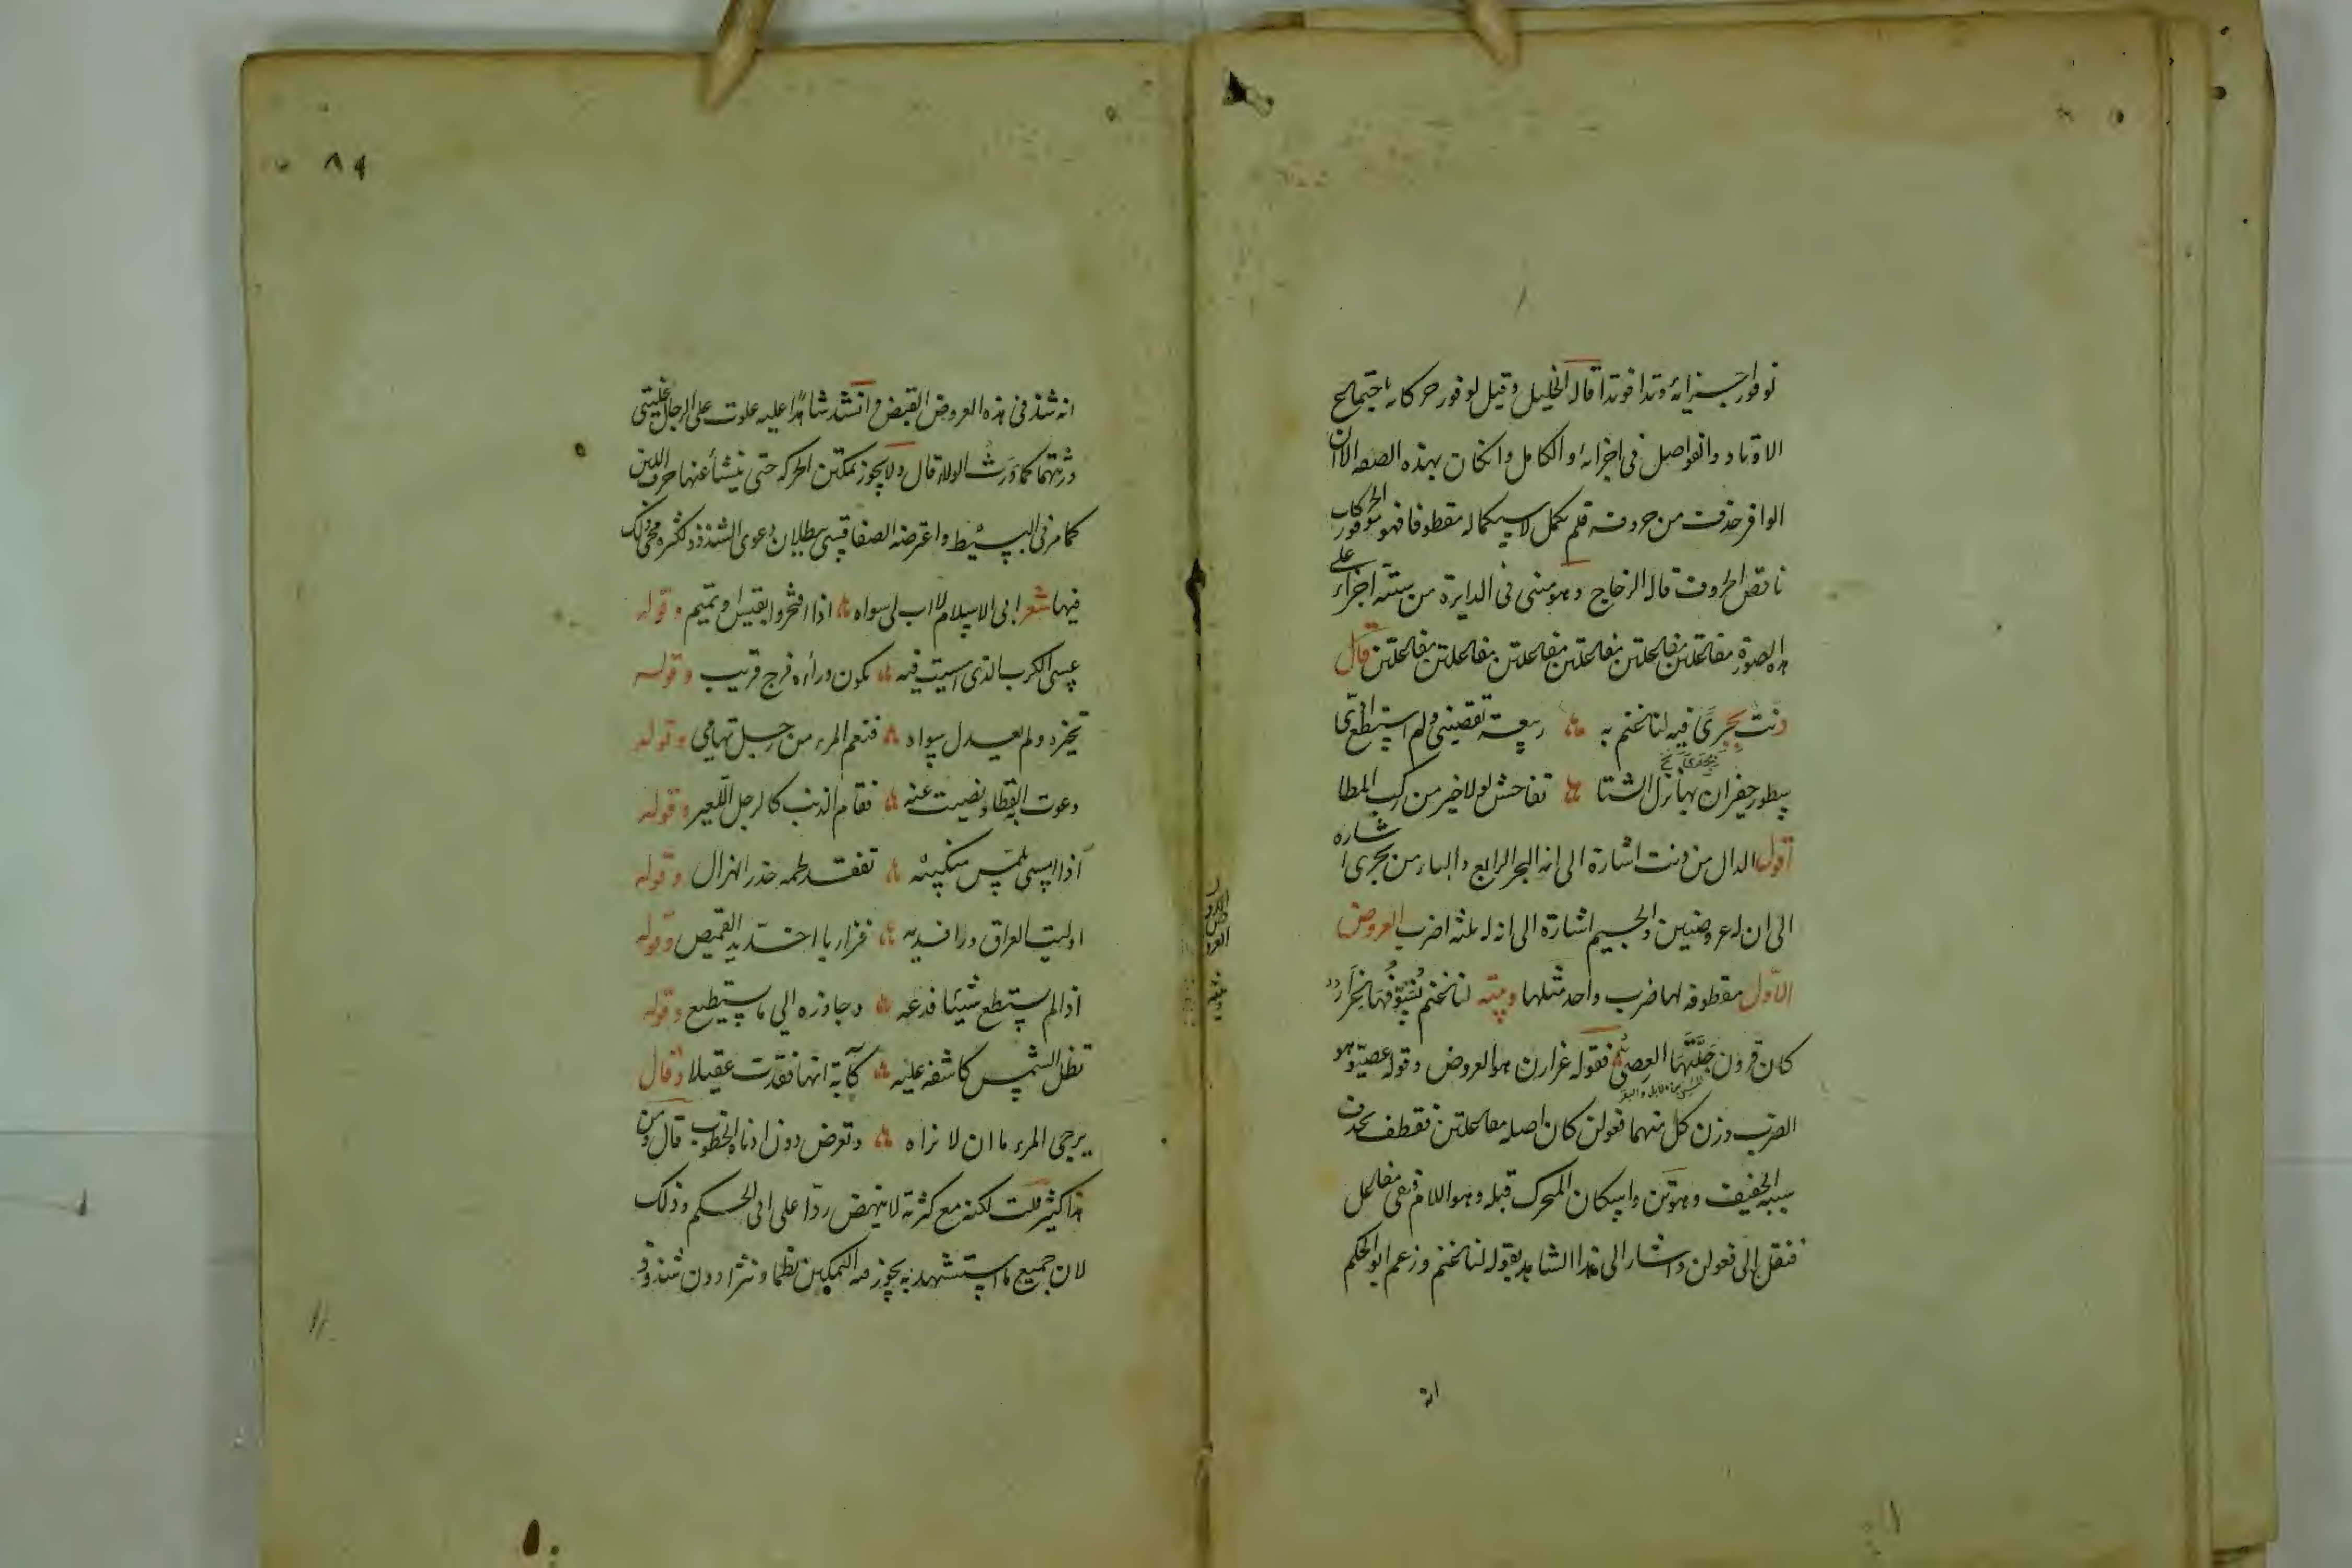 لوفور اجزائه وتدا فوتدا قاله الخليل وقيل لوفور حركاته باجتماع
الاوتاد والفواصل فى اجزائه والكامل وانكان بهذه الصفه الا ان
الوافر حذفت من حروفه فلم يكمل لاستكماله مقطوفا فهو موفور الحركات
ناقص الحروف قاله الزجاج وهو مبنى فى الدايرة من ستة اجزاء على
هذه الصورة مفاعلتن مفاعلتن مفاعلتن مفاعلتن مفاعلتن مفاعلتن قال
دنت بجرى فيه لنا غنم به ربيعة تعصينى ولم استطع
سطور حفران بها نزل الشتا تفاحش لولا خير من ركب المطا
اقول الدال من دنت اشارة الى انه البحر الرابع والباء من بجرى اشاره
الى ان له عروضين والجيم اشارة الى انه له ثلثة اضرب العروض
الاول مقطوفه لها ضرب واحد مثلها وبيته لنا غنم نسوقها غزار
كان قرون جلتها العصى فقوله غزارن هو العروض وقوله عصيو هو
الضرب وزن كل منهما فعولن كان اصله مفاعلتن فقطف بحذف
سببه الخفيف وهو تن واسكان المتحرك قبله وهو اللام فبقى مفاعل
فنقل الى فعولن واشار الى هذا الشاهد بقوله لنا غنم وزعم ابو الحكم
انه
٨٩
انه شذ فى هذه العروض القبض وانشد شاهدا عليه علوت على الرجال بخلتى
ورثتهما كما ورث الولاء قال ولا يجوز تمكين الحركه حتى ينشأ عنها حرف اللين
كما مر فى البسيط واعترضه الصفاقسى ببطلان دعوى الشذوذ لكثره مجى ذلك
فيها شعر ابى الاسلام لا اب لى سواه اذا افتخروا بقيس او تميم وقوله
عسى الكرب الذى امسيت فيه يكون وراءه فرج قريب وقوله
تخيره ولم يعدل سواه فنعم المرء من رجل تهامى وقوله
ذعرت به القطا ونفيت عنه مقام الذئب كالرجل اللعين وقوله
اذا امسى يلمس منكبيه تفقد لحمه حذر الهزال وقوله
اوليت العراق ورافديه فزاريا احذ يد القميص وقوله
اذا لم يستطع شيئا فدعه وجاوزه الى ما يستطيع وقوله
تظل الشمس كاسفه عليه كآبة انها فقدت عقيلا وقال
يرجى المرء ما ان لا يراه وتعرض دون ادناه الخطوب قال ومن
هذا كثير قلت لكنه مع كثرته لا ينهض ردا على ابى الحكم وذلك
لان جميع ما استشهد به يجوز فيه التمكين نظما ونثرا دون شذوذ